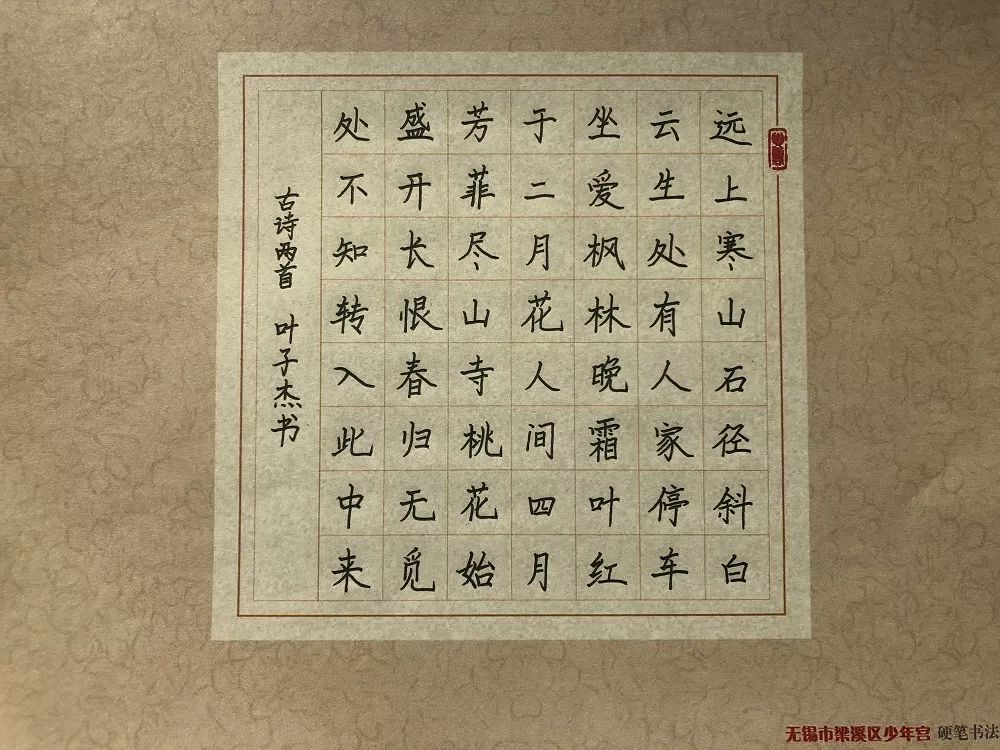 远上寒山石径斜白
云生处有人家停车
坐爱枫林晚霜叶红
于二月花人间四月
芳菲尽山寺桃花始
盛开长恨春归无觅
处不知转入此中来
古诗两首 叶子杰书
无锡市梁溪区少年宫 硬笔书法